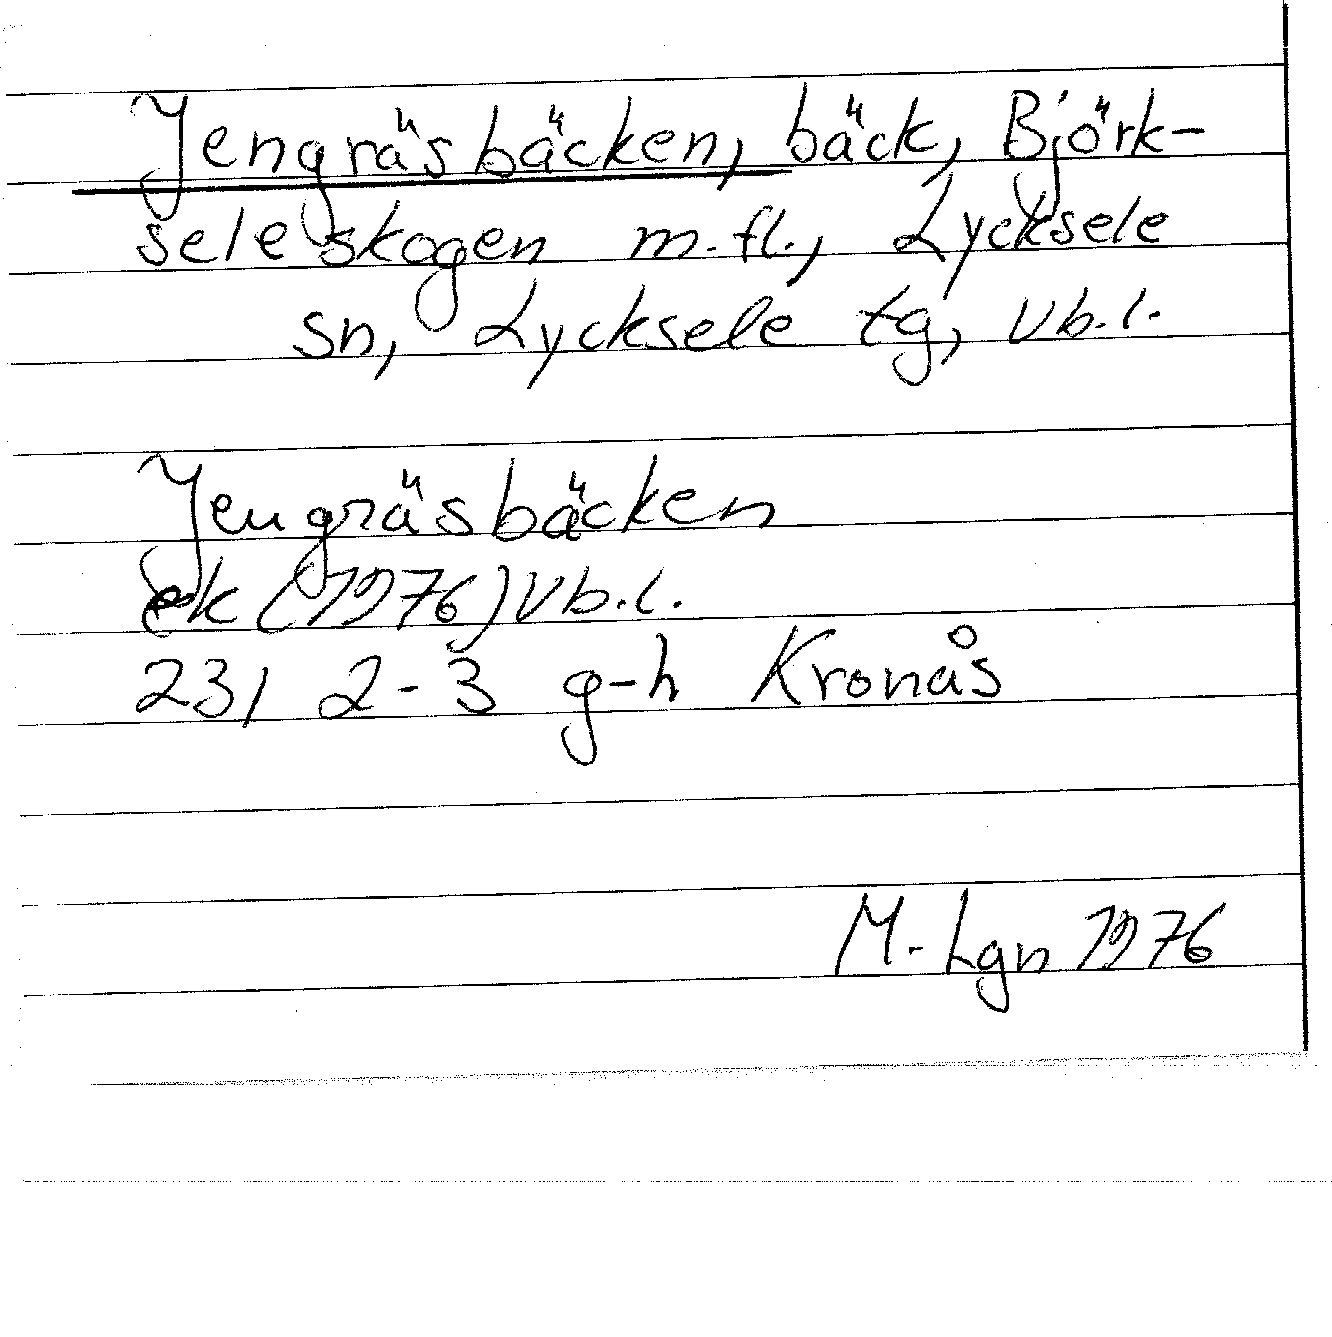 Jengräsbäcken, bäck, Björk-
seleskogen m.fl., Lycksele
sn, Lycksele tg, Vb.l.
Jengräsbäcken
ek (1976) Vb.l.
23I 2-3 g-h Kronås
M. Lgn 1976